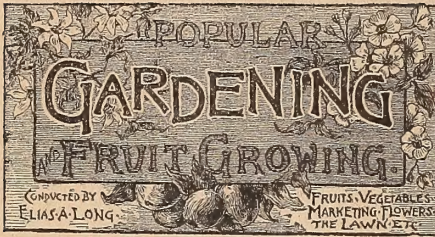 POPULAR
GARDENING
AND FRUIT GROWING.
CONDUCTED BY
ELIAS·A·LONG·
FRUITS·VEGETABLES·
MARKETING·FLOWERS·
THE LAWN·ETC